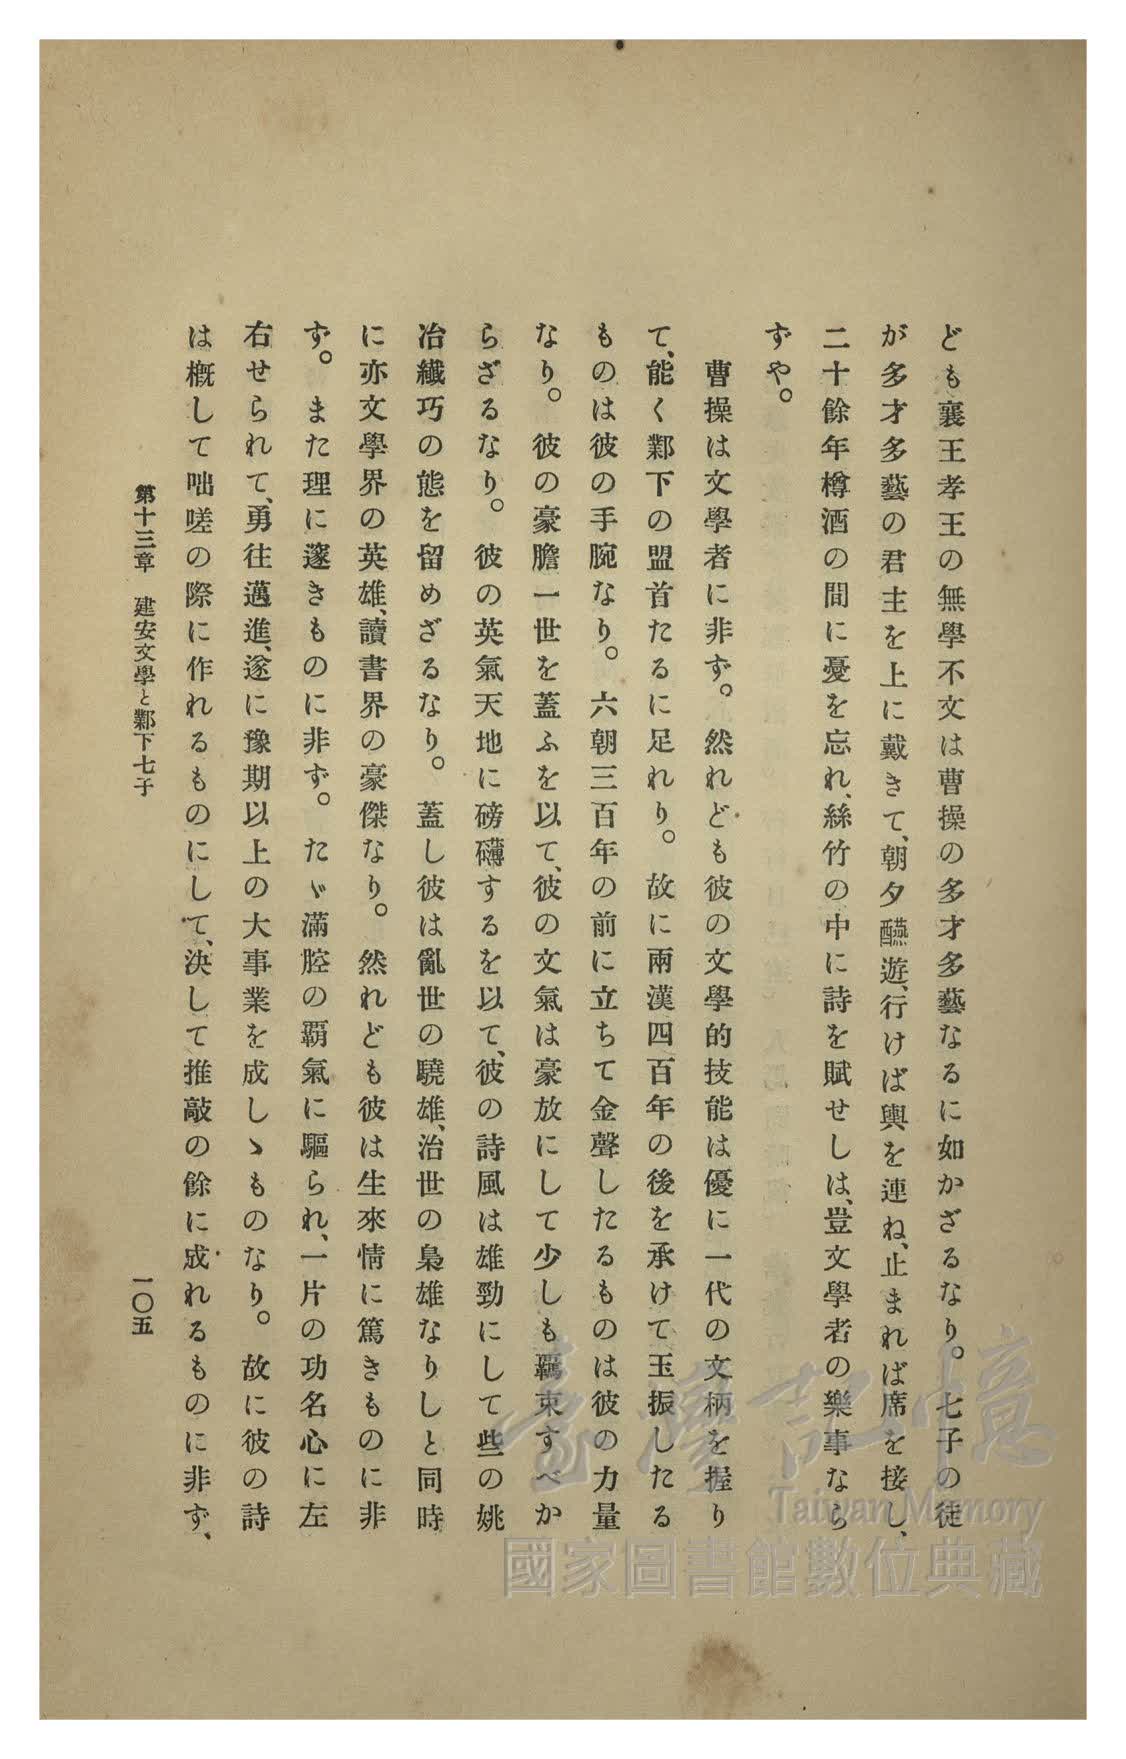 ども襄王孝王の無學不文は曹操の多才多藝なるに如かざるなり。七子の徒
が多才多藝の君主を上に戴きて、朝夕醼遊、行けば輿を連ね、止まれば席を接し、
二十餘年樽酒の間に憂を忘れ、絲竹の中に詩を賦せしは、豈文學者の樂事なら
ずや。
曹操は文學者に非ず。然れども彼の文學的技能は優に一代の文柄を握り
て、能く鄴下の盟首たるに足れり。故に兩漢四百年の後を承けて玉振したる
ものは彼の手腕なり。六朝三百年の前に立ちて金聲したるものは彼の力量
なり。彼の豪膽一世を蓋ふを以て、彼の文氣は豪放にして少しも羈束すべか
らざるなり。彼の英氣天地に磅礴するを以て、彼の詩風は雄勁にして些の姚
冶纖巧の態を留めざるなり。蓋し彼は亂世の驍雄、治世の梟雄なりしと同時
に亦文學界の英雄、讀書界の豪傑なり。然れども彼は生來情に篤きものに非
ず。また理に邃きものに非ず。たゞ滿腔の覇氣に驅られ、一片の功名心に左
右せられて、勇往邁進、遂に豫期以上の大事業を成しゝものなり。故に彼の詩
は概して咄嗟の際に作れるものにして、決して推敲の餘に成れるものに非ず、
第十三章 建安文學と鄴下七子
一〇五
臺灣記憶
Taiwan Memory
國家圖書館數位典藏